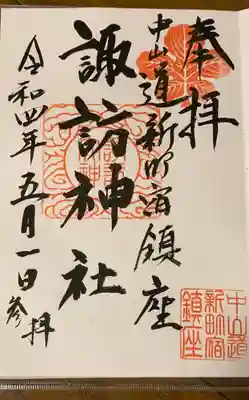 奉拝
中山道新町宿鎮座
諏訪神社
令和四年五月一日参拝
中山道
新町宿
鎮座